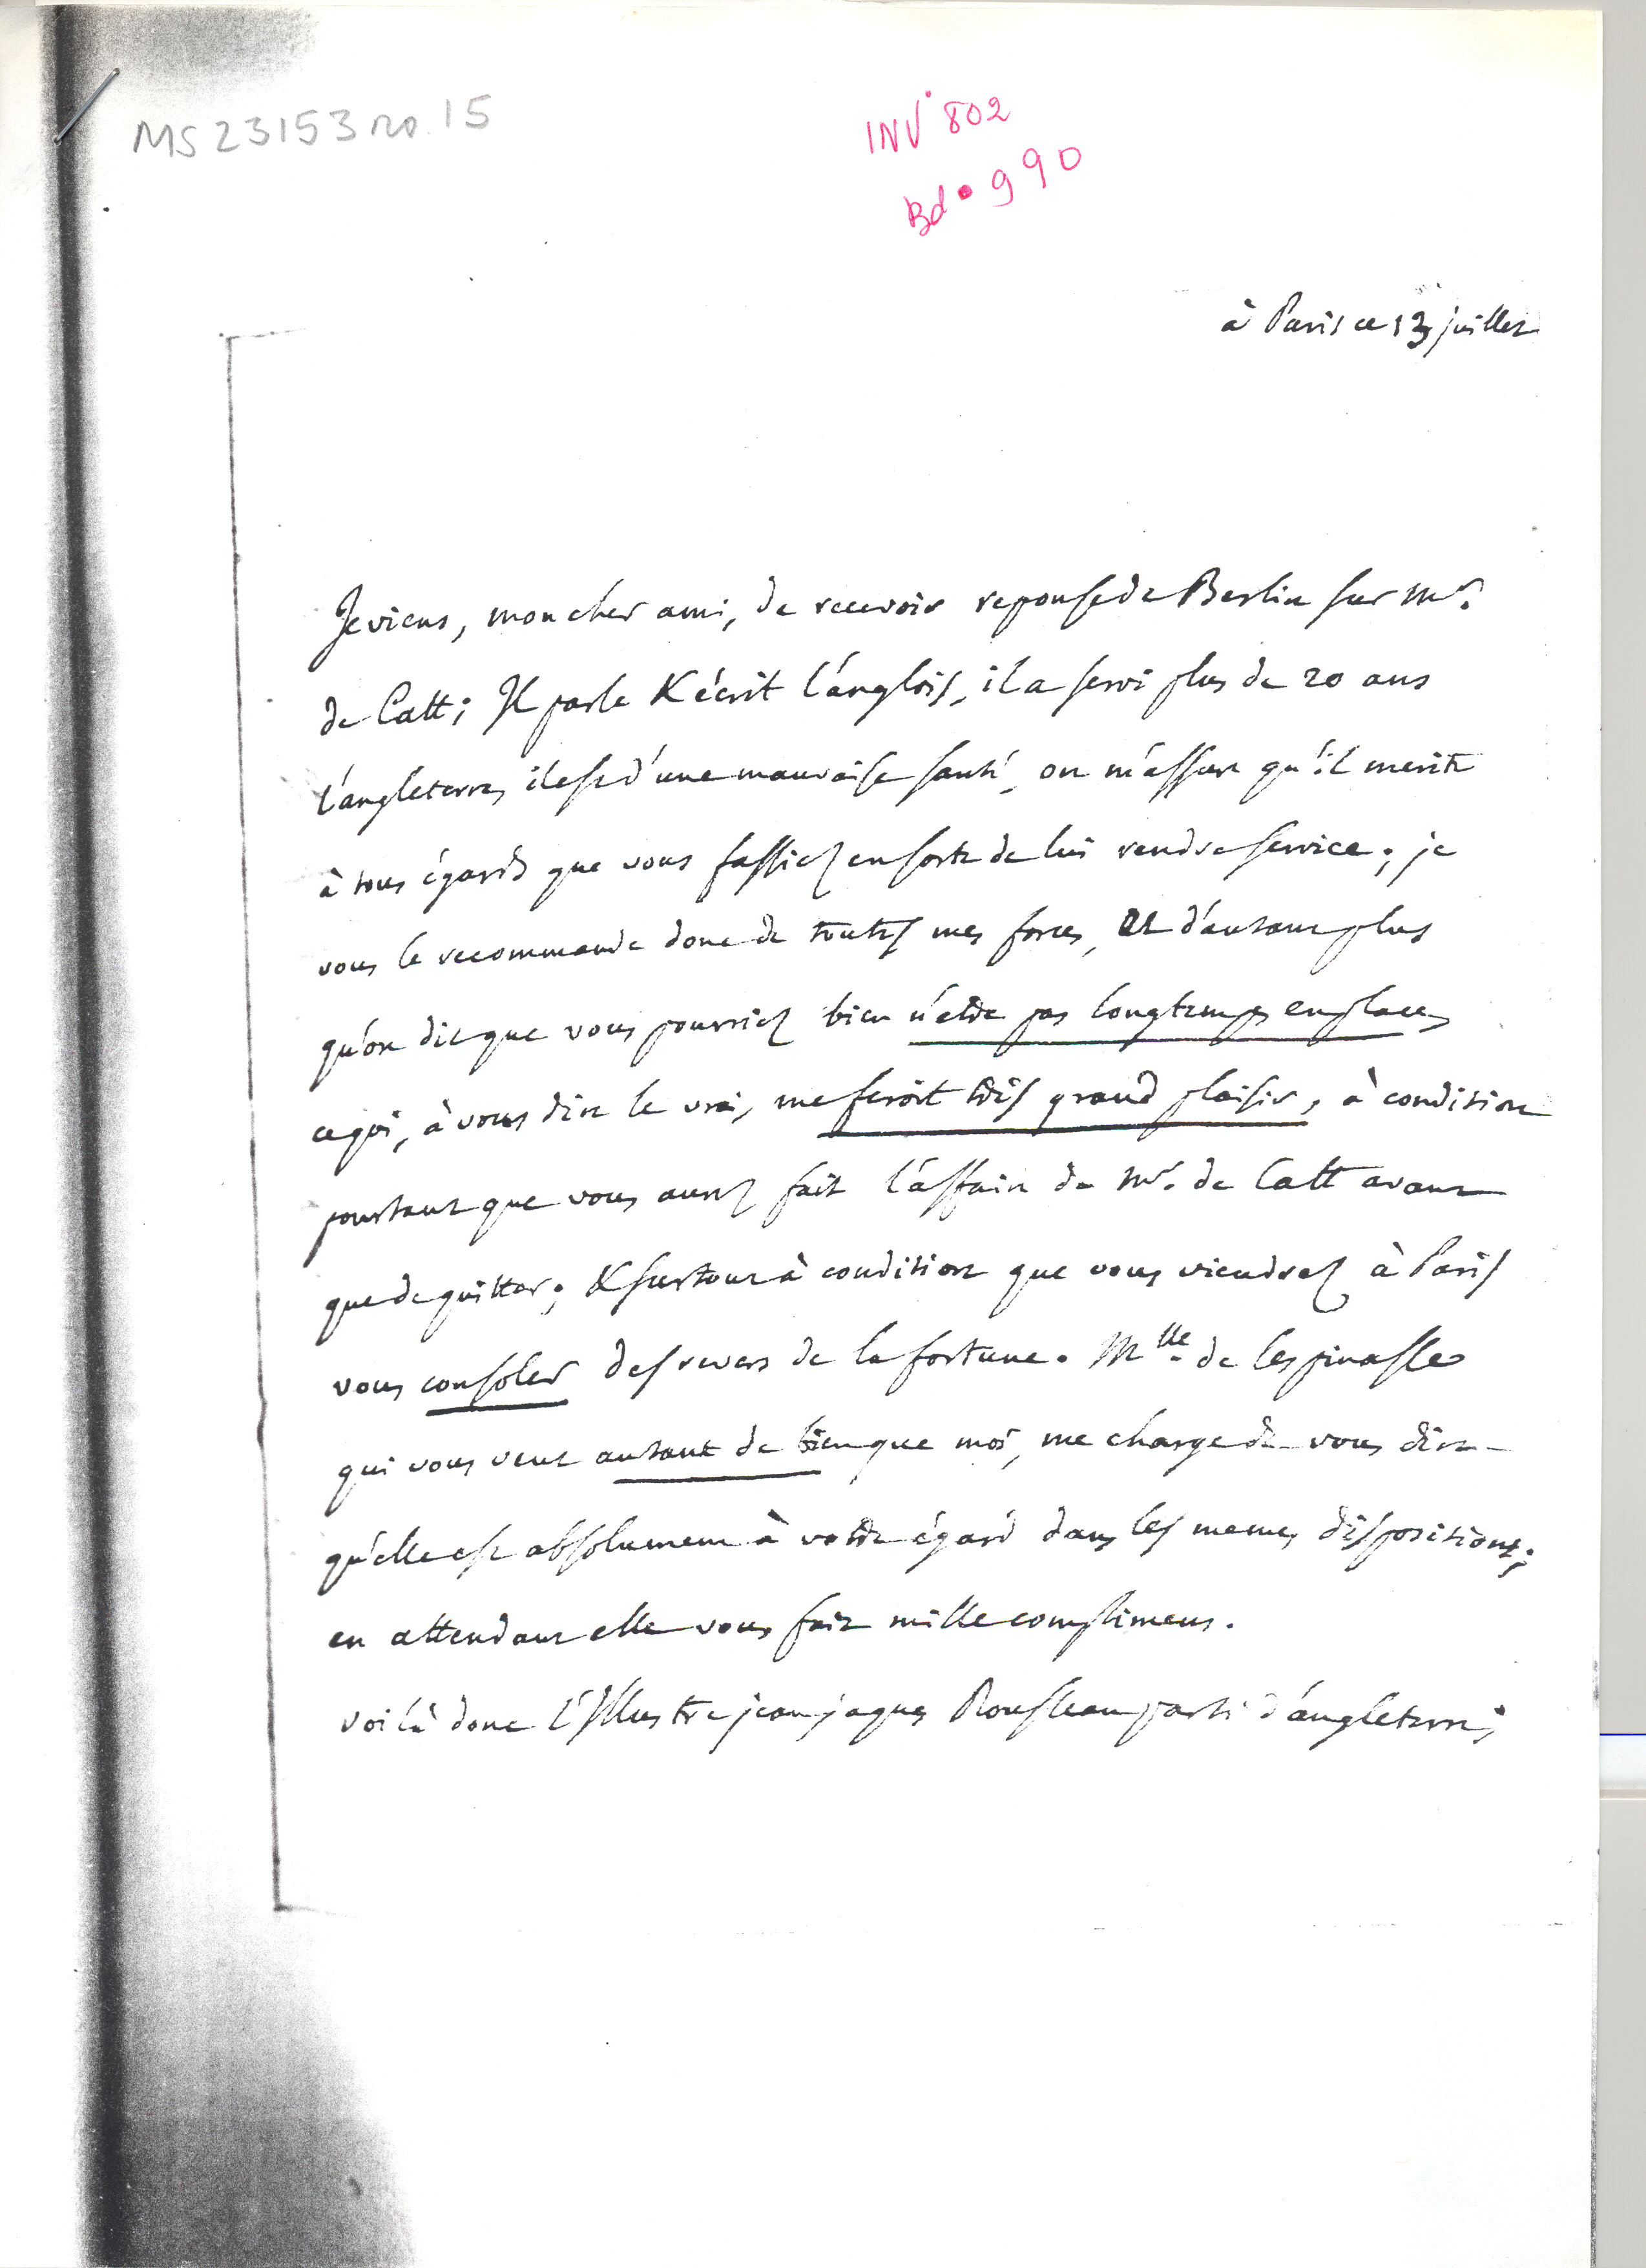 MS 23153 no. 15
INV 802
Bd. 990
à Paris ce 13 juillet
Je viens, mon cher ami, de recevoir reponse de Berlin sur Mr.
de Catt; Il parle & écrit l'anglois, il a servi plus de 20 ans
l'angleterre, il est d'une mauvaise santé, on m'assure qu'il merite
à tous égards que vous fassiez en sorte de lui rendre service; je
vous le recommande donc de toutes mes forces, et d'autant plus
qu'on dit que vous pourriez bien n'etre pas longtemps en place,
ce qui, à vous dire le vrai, me feroit très grand plaisir, à condition
pourtant que vous aurez fait l'affaire de Mr. de Catt avant
que de quitter; & surtout à condition que vous viendrez à Paris
vous consoler des revers de la fortune. Mlle. de lespinasse
qui vous veut autant de bien que moi, me charge de vous dire
qu'elle est absolument à votre égard dans les memes dispositions;
en attendant elle vous fait mille complimens.
voilà donc l'Illustre jean jaques Rousseau parti d'angleterre;